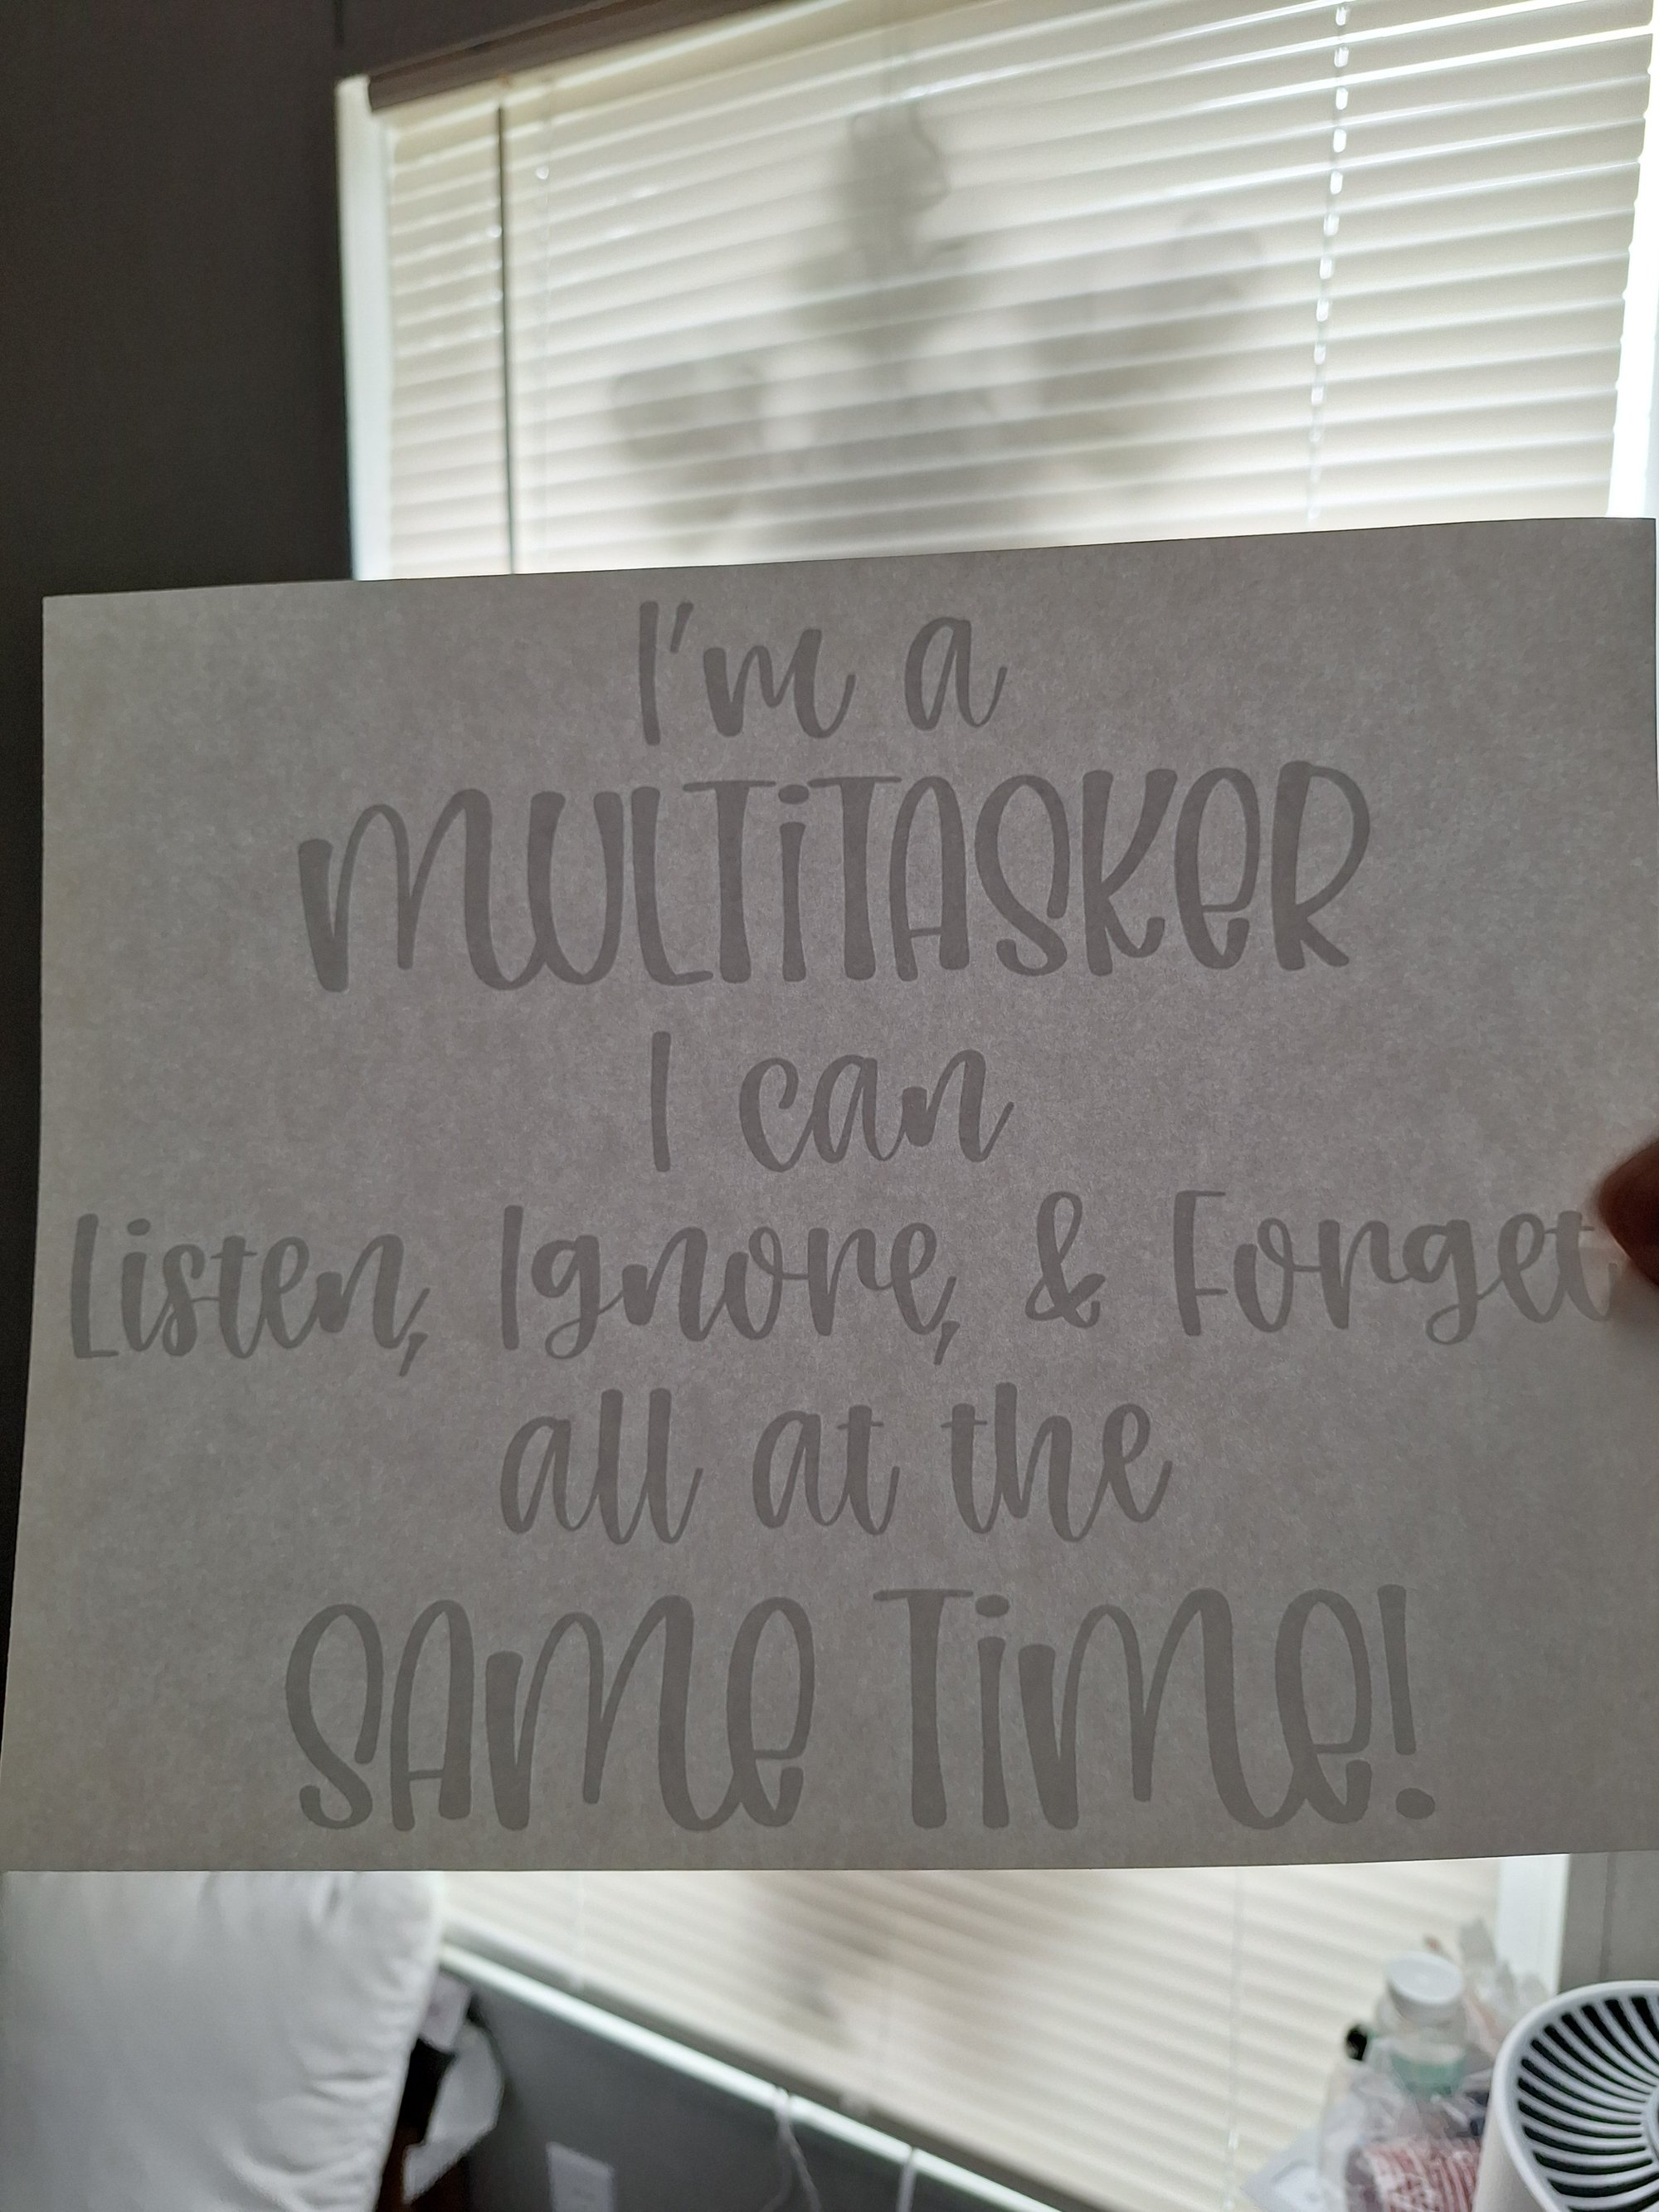 I'm a
MULTiTASKeR
I can
Listen, Ignore, & Forget
all at the
SAMe TiMe!